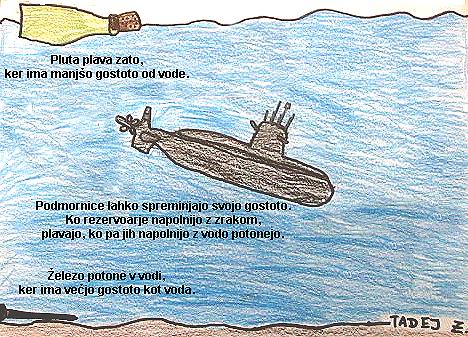 Pluta plava zato,
ker ima manjšo gostoto od vode.
Podmornice lahko spreminjajo svojo gostoto.
Ko rezervoarje napolnijo z zrakom,
plavajo, ko pa jih napolnijo z vodo potonejo.
Železo potone v vodi,
ker ima večjo gostoto kot voda.
TADEJ Z